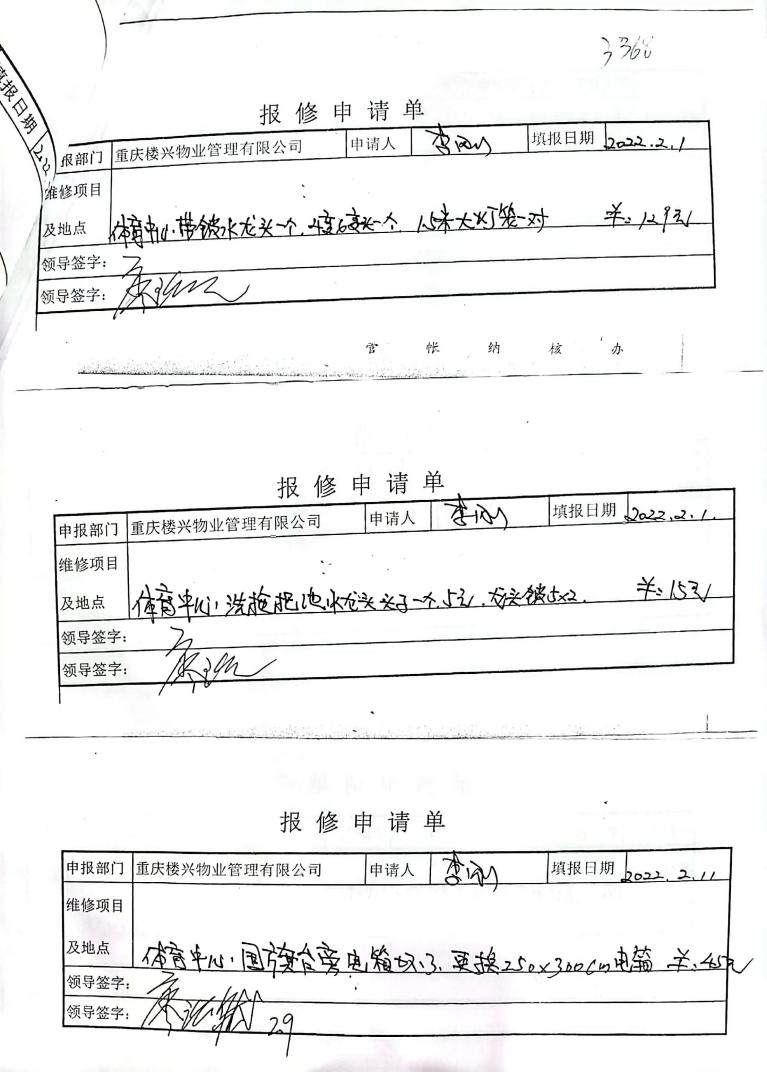 3368
填报日期 202
报修申请单
报部门 重庆楼兴物业管理有限公司 申请人 李刚 填报日期 2022.2.1
维修项目
及地点 体育中心,带锁水龙头一个, 一个, 1.5米大灯笼一对 ¥:129元
领导签字:
领导签字:
官 帐 纳 核 办
报修申请单
申报部门 重庆楼兴物业管理有限公司 申请人 李刚 填报日期 2022.2.1.
维修项目
及地点 体育中心,洗拖把池水龙头 一个,5元,龙头锁5x2. ¥:15元
领导签字:
领导签字:
报修申请单
申报部门 重庆楼兴物业管理有限公司 申请人 李刚 填报日期 2022.2.11
维修项目
及地点 体育中心:国旗台旁电箱坏了,更换250x300cm电箱 ¥:45元
领导签字:
领导签字: 29